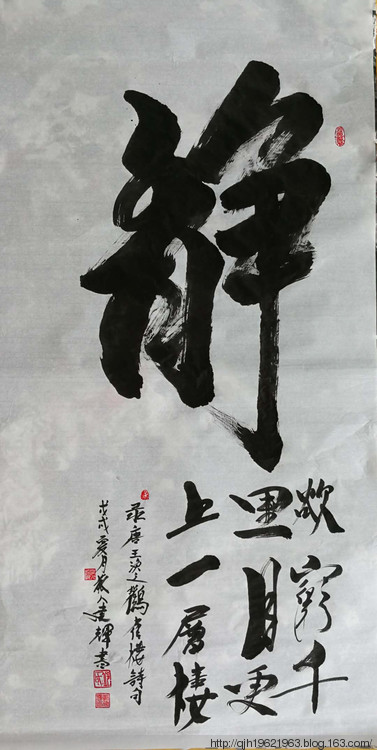 静
欲窮千
里目更
上一層樓
录唐王涣之鸛雀樓詩句
戊戌夏月 建輝書
http://qjh19621963.blog.163.com/